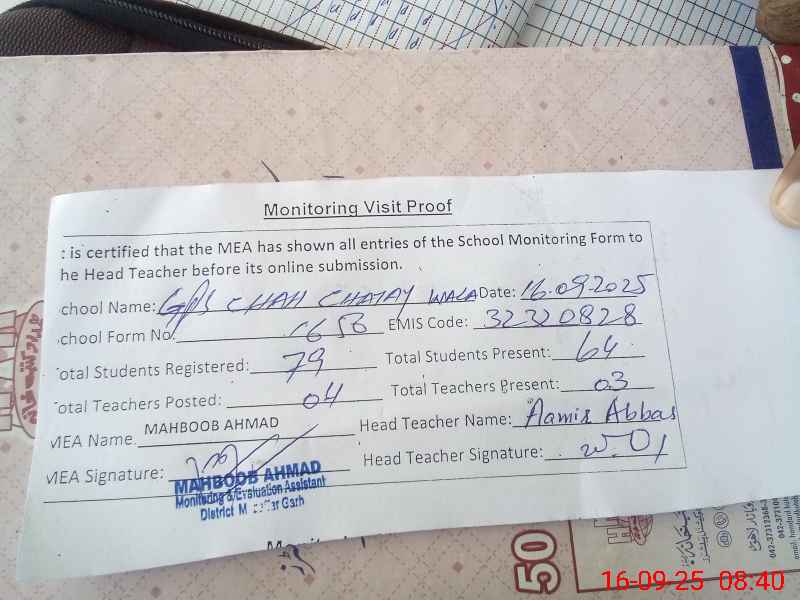 Monitoring Visit Proof
: is certified that the MEA has shown all entries of the School Monitoring Form to
he Head Teacher before its online submission.
chool Name: GPS CHAH CHATAY WALA Date: 16.09.2025
chool Form No. 1656 EMIS Code: 32320828
otal Students Registered: 79 Total Students Present: 64
otal Teachers Posted: 04 Total Teachers Present: 03
MEA Name. MAHBOOB AHMAD Head Teacher Name: Aamir Abbas
MEA Signature: Head Teacher Signature:
MAHBOOB AHMAD
Monitoring & Evaluation Assistant
District Garh
50
16-09-25 08:40